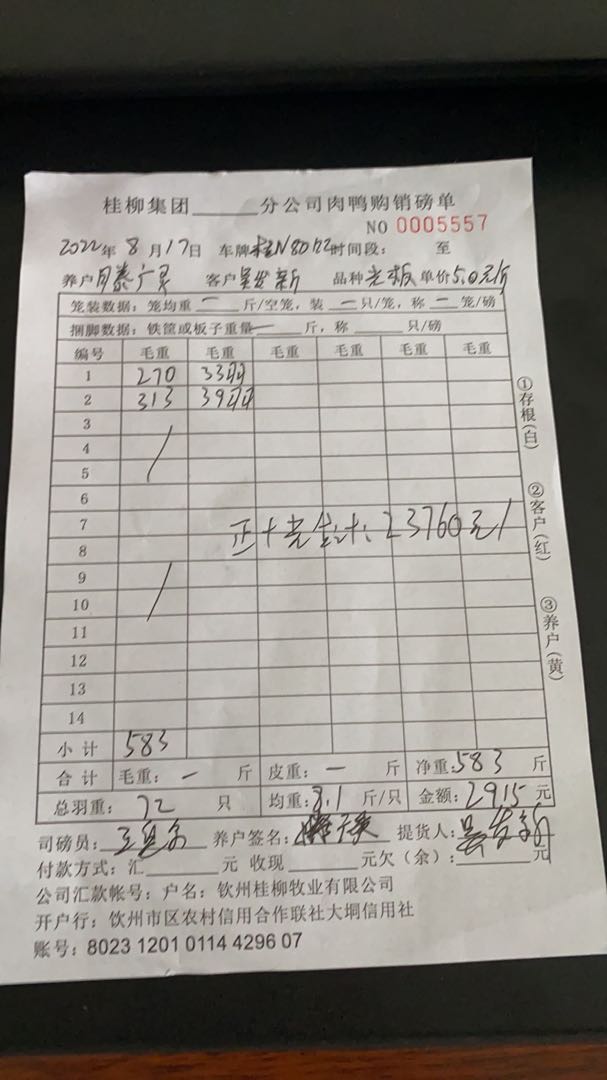 桂柳集团______分公司肉鸭购销磅单
NO 0005557
2022年8月17日 车牌 时间段: 至
养户 客户 品种 光板 单价5.0元/斤
笼装数据:笼均重 一 斤/空笼,装 一 只/笼,称 一 笼/磅
捆脚数据:铁筐或板子重量 一 斤,称______只/磅
编号 毛重 毛重 毛重 毛重 毛重 毛重
1 270
2 313
3
4
5
6
7 23760元
8
9
10
11
12
13
14
小计 583
合计 毛重: 一 斤 皮重: 一 斤 净重:583 斤
总羽重: 72 只 均重:8.1 斤/只 金额:2915 元
司磅员: 养户签名: 提货人:
付款方式:汇______元 收现______元欠(余):______元
公司汇款帐号:户名:钦州桂柳牧业有限公司
开户行:钦州市区农村信用合作联社大垌信用社
账号:8023 1201 0114 4296 07
①存根(白)
②客户(红)
③养户(黄)